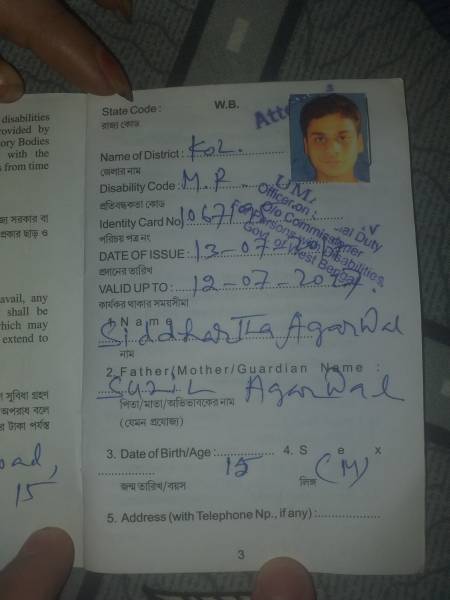 disabilities
rovided by
ory Bodies
with the
s from time
জ্য সরকার বা
প্রকার ছাড় ও
avail, any
shall be
which may
extend to
সুবিধা গ্রহণ
অপরাধ বলে
র টাকা পর্যন্ত
oad,
15
State Code : W.B.
রাজ্য কোড
Name of District : KOL.
জেলার নাম
Disability Code : M.R.
প্রতিবন্ধকতা কোড
Identity Card No
পরিচয় পত্র নং
DATE OF ISSUE : 13-07-
প্রদানের তারিখ
VALID UP TO : 12-07-
কার্যকর থাকার সময়সীমা
Officer on Duty
O/o Commissioner
For Persons with Disabilities,
Govt. of West Bengal
1. Name
Siddhartha Agarwal
নাম
2. Father/Mother/Guardian Name :
Sunil Agarwal
পিতা/মাতা/অভিভাবকের নাম
(যেমন প্রযোজ্য)
3. Date of Birth/Age : 15 4. Sex (M)
জন্ম তারিখ/বয়স লিঙ্গ
5. Address (with Telephone Np., if any) :
3